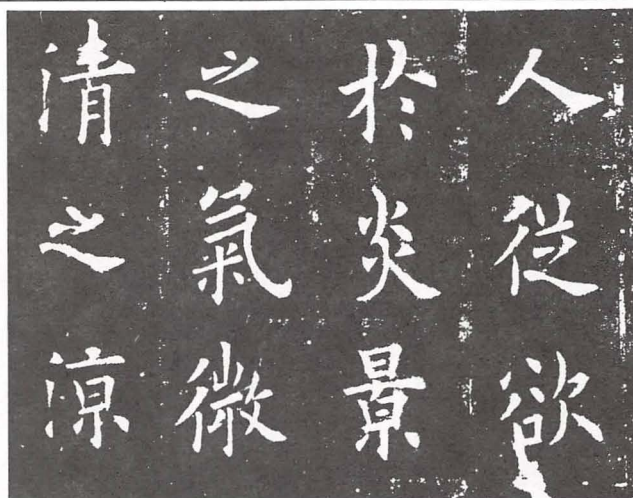 人從欲
於炎景
之氣微
清之涼